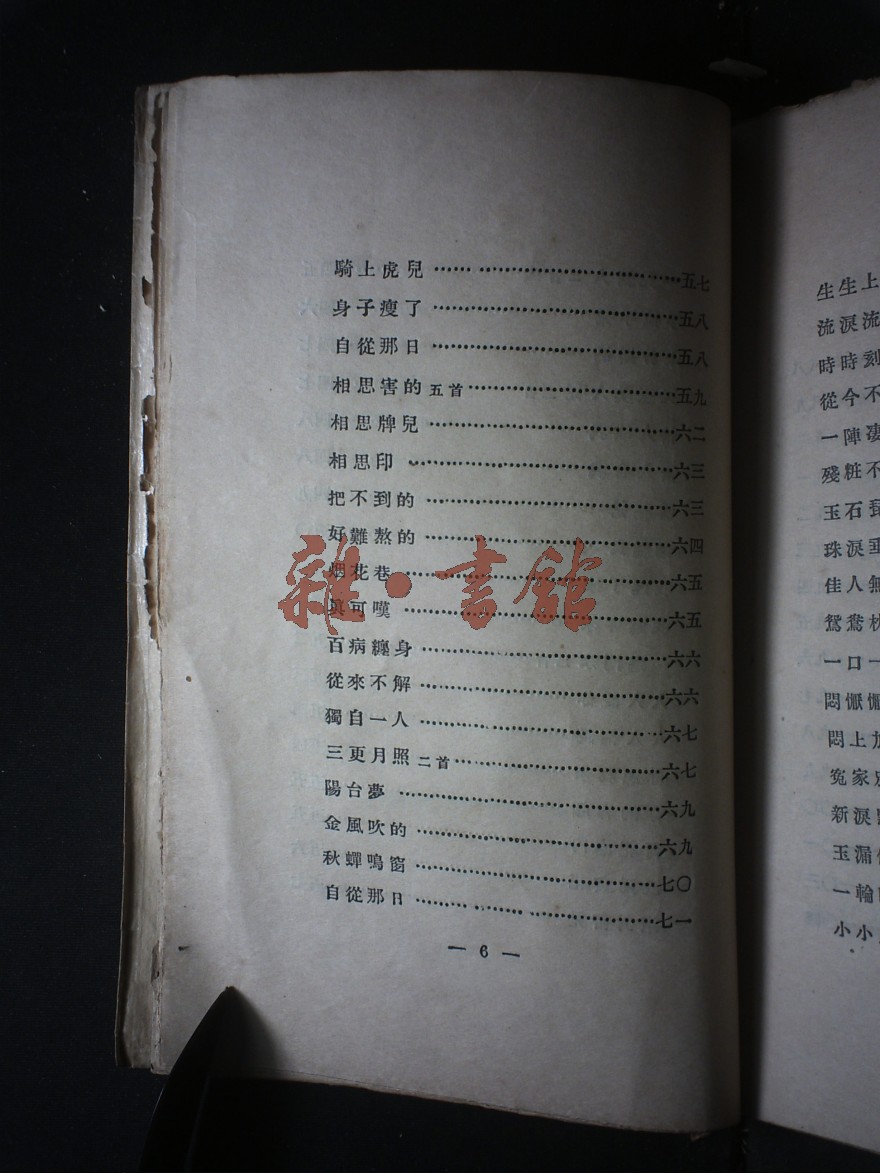 騎上虎兒…………………………五七
身子瘦了…………………………五八
自從那日…………………………五八
相思害的 五首…………………………五九
相思牌兒…………………………六二
相思印…………………………六三
把不到的…………………………六三
好難熬的…………………………六四
烟花巷…………………………六五
眞可嘆…………………………六五
百病纏身…………………………六六
從來不解…………………………六六
獨自一人…………………………六七
三更月照 二首…………………………六七
陽台夢…………………………六九
金風吹的…………………………六九
秋蟬鳴窗…………………………七〇
自從那日…………………………七一
— 6 —
雜·書館
生生上
流淚流
時時刻
從今不
一陣凄
殘粧不
玉石
珠淚垂
佳人無
鴛鴦枕
一口一
悶懨懨
悶上加
冤家
新淚
玉漏
一輪
小小